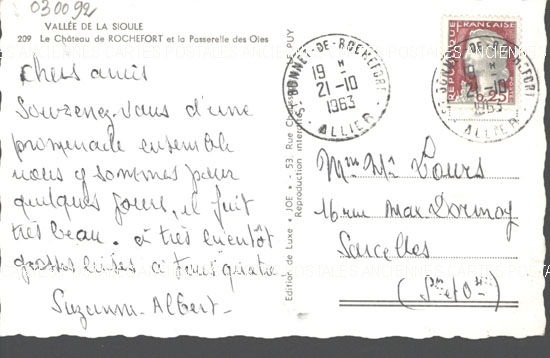 030092
VALLÉE DE LA SIOULE
209 Le Château de ROCHEFORT et la Passerelle des Oies
chers amis
Souvenez-vous d'une
promenade ensemble
nous y sommes pour
quelques jours, il fait
très beau. à très bientôt
grosses bises à tous quatre
Suzanne-Albert-
Edition de Luxe ★ JOE ★ - 53, Rue LE PUY
Reproduction interdite
ST BONNET-DE-ROCHEFORT
19 H
21-10
1963
ALLIER
REPUBLIQUE FRANÇAISE
0,25
ST BONNET-DE-ROCHEFORT
19 H
21-10
1963
ALLIER
Mme Mr Cours
16 rue Max Dormoy
Sarcelles
(Sne et Oise)